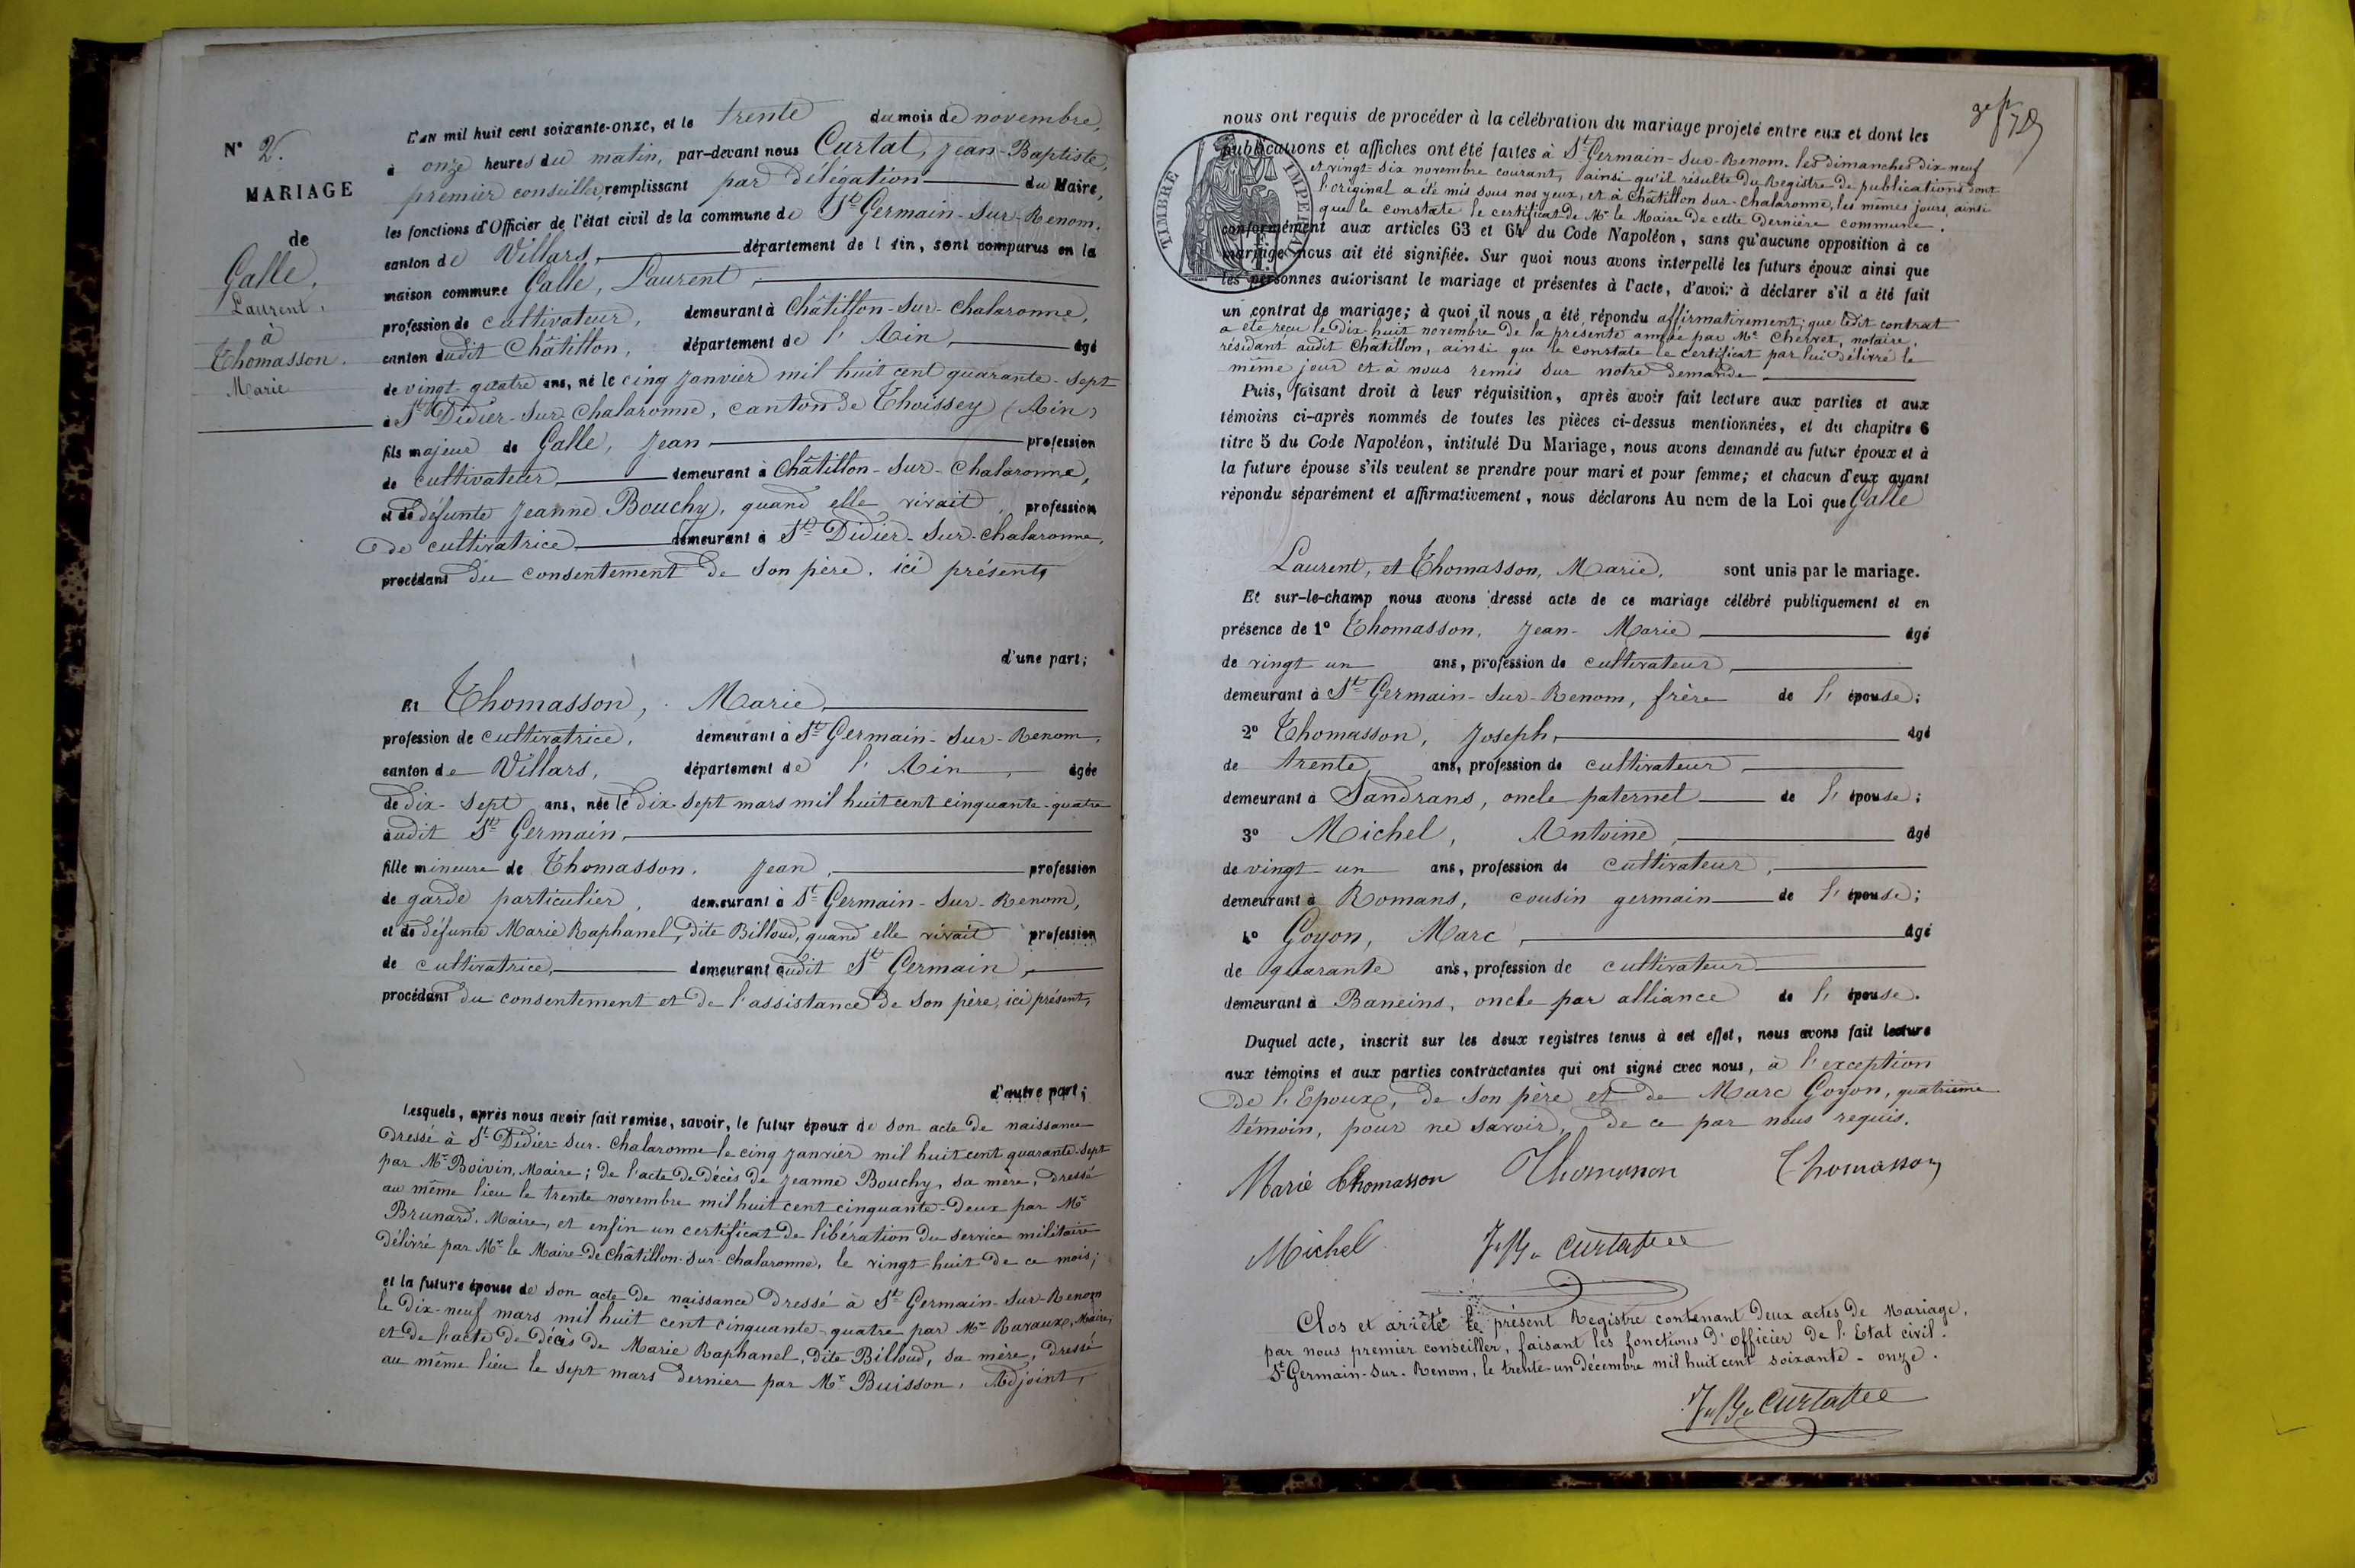 N° 2.
MARIAGE
de
Galle,
Laurent,
à
Thomasson.
Marie
L'AN mil huit cent soixante-onze, et le trente du mois de novembre,
à onze heures du matin, par-devant nous Curtat, Jean-Baptiste,
premier conseiller, remplissant par délégation du Maire,
les fonctions d'Officier de l'état civil de la commune de St Germain-sur-Renom.
canton de Villars, département de l'Ain, sont comparus en la
maison commune Galle, Laurent,
profession de cultivateur, demeurant à Châtillon-sur-Chalaronne,
canton dudit Châtillon, département de l'Ain, âgé
de vingt-quatre ans, né le cinq janvier mil huit cent quarante-sept
à St Didier-sur-Chalaronne, canton de Thoissey (Ain)
fils majeur de Galle, Jean profession
de cultivateur demeurant à Châtillon-sur-Chalaronne,
et de défunte Jeanne Bouchy, quand elle vivait, profession
de cultivatrice demeurant à St Didier-sur-Chalaronne,
procédant du consentement de son père, ici présent,
d'une part;
Et Thomasson, Marie,
profession de cultivatrice, demeurant à St Germain-sur-Renom,
canton de Villars, département de l'Ain, âgée
de dix-sept ans, née le dix-sept mars mil huit cent cinquante-quatre
audit St Germain,
fille mineure de Thomasson, Jean, profession
de garde particulier, demeurant à St Germain-sur-Renom,
et de défunte Marie Raphanel, dite Billoud, quand elle vivait profession
de cultivatrice, demeurant audit St Germain,
procédant du consentement et de l'assistance de son père, ici présent,
d'autre part;
Lesquels, après nous avoir fait remise, savoir, le futur époux de son acte de naissance
dressé à St Didier-sur-Chalaronne le cinq janvier mil huit cent quarante-sept
par Mr Boivin, Maire; de l'acte de décès de Jeanne Bouchy, sa mère, dressé
au même lieu le trente novembre mil huit cent cinquante-deux par Mr
Brunard, Maire, et enfin un certificat de libération du service militaire
délivré par Mr le Maire de Châtillon-sur-Chalaronne, le vingt-huit de ce mois;
et la future épouse de son acte de naissance dressé à St Germain-sur-Renom
le dix-neuf mars mil huit cent cinquante-quatre par Mr Ravaux, Maire,
et de l'acte de décès de Marie Raphanel, dite Billoud, sa mère, dressé
au même lieu le sept mars dernier par Mr Buisson, Adjoint,
nous ont requis de procéder à la célébration du mariage projeté entre eux et dont les
publications et affiches ont été faites à St Germain-sur-Renom. les dimanches dix neuf
et vingt-six novembre courant, ainsi qu'il résulte du Registre de publications dont
l'original a été mis sous nos yeux, et à Châtillon-sur-Chalaronne, les mêmes jours, ainsi
que le constate le certificat de Mr le Maire de cette dernière commune.
TIMBRE IMPERIAL
conformément aux articles 63 et 64 du Code Napoléon, sans qu'aucune opposition à ce
mariage nous ait été signifiée. Sur quoi nous avons interpellé les futurs époux ainsi que
les personnes autorisant le mariage et présentes à l'acte, d'avoir à déclarer s'il a été fait
un contrat de mariage; à quoi il nous a été répondu affirmativement; que ledit contrat
a été reçu le dix-huit novembre de la présente année par Me Chervet, notaire,
résidant audit Châtillon, ainsi que le constate le certificat par lui délivré le
même jour et à nous remis sur notre demande
Puis, faisant droit à leur réquisition, après avoir fait lecture aux parties et aux
témoins ci-après nommés de toutes les pièces ci-dessus mentionnées, et du chapitre 6
titre 5 du Code Napoléon, intitulé Du Mariage, nous avons demandé au futur époux et à
la future épouse s'ils veulent se prendre pour mari et pour femme; et chacun d'eux ayant
répondu séparément et affirmativement, nous déclarons Au nom de la Loi que Galle
Laurent, et Thomasson, Marie, sont unis par le mariage.
Et sur-le-champ nous avons dressé acte de ce mariage célébré publiquement et en
présence de 1° Thomasson, Jean-Marie âgé
de vingt un ans, profession de cultivateur,
demeurant à St Germain-sur-Renom, frère de l'épouse;
2° Thomasson, Joseph, âgé
de trente ans, profession de cultivateur,
demeurant à Sandrans, oncle paternel de l'épouse;
3° Michel, Antoine, âgé
de vingt-un ans, profession de cultivateur,
demeurant à Romans, cousin germain de l'épouse;
4° Goyon, Marc, âgé
de quarante ans, profession de cultivateur
demeurant à Baneins, oncle par alliance de l'épouse.
Duquel acte, inscrit sur les deux registres tenus à cet effet, nous avons fait lecture
aux témoins et aux parties contractantes qui ont signé avec nous, à l'exception
de l'Epoux, de son père et de Marc Goyon, quatrième
témoin, pour ne savoir, de ce par nous requis.
Marie Thomasson Thomasson Thomasson
Michel
Clos et arrêté le présent Registre contenant deux actes de Mariage,
par nous premier conseiller, faisant les fonctions d'Officier de l'Etat civil.
St Germain-sur-Renom, le trente-un décembre mil huit cent soixante-onze.